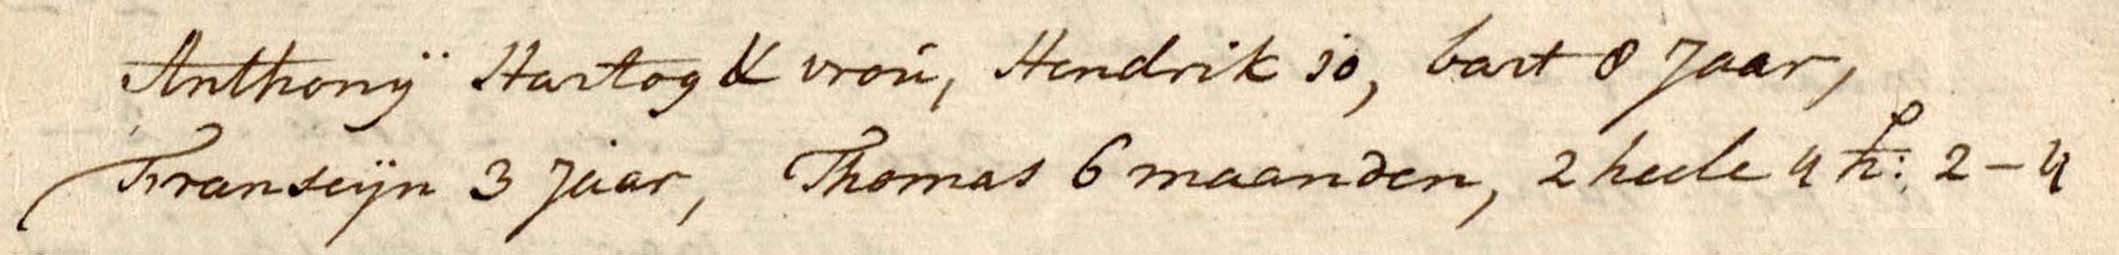 Anthonÿ Hartog & vroú, Hendrik 10, bart 8 Jaar,
Franseijn 3 Jaar, Thomas 6 maanden, 2 heele 4 h: 2 - 4